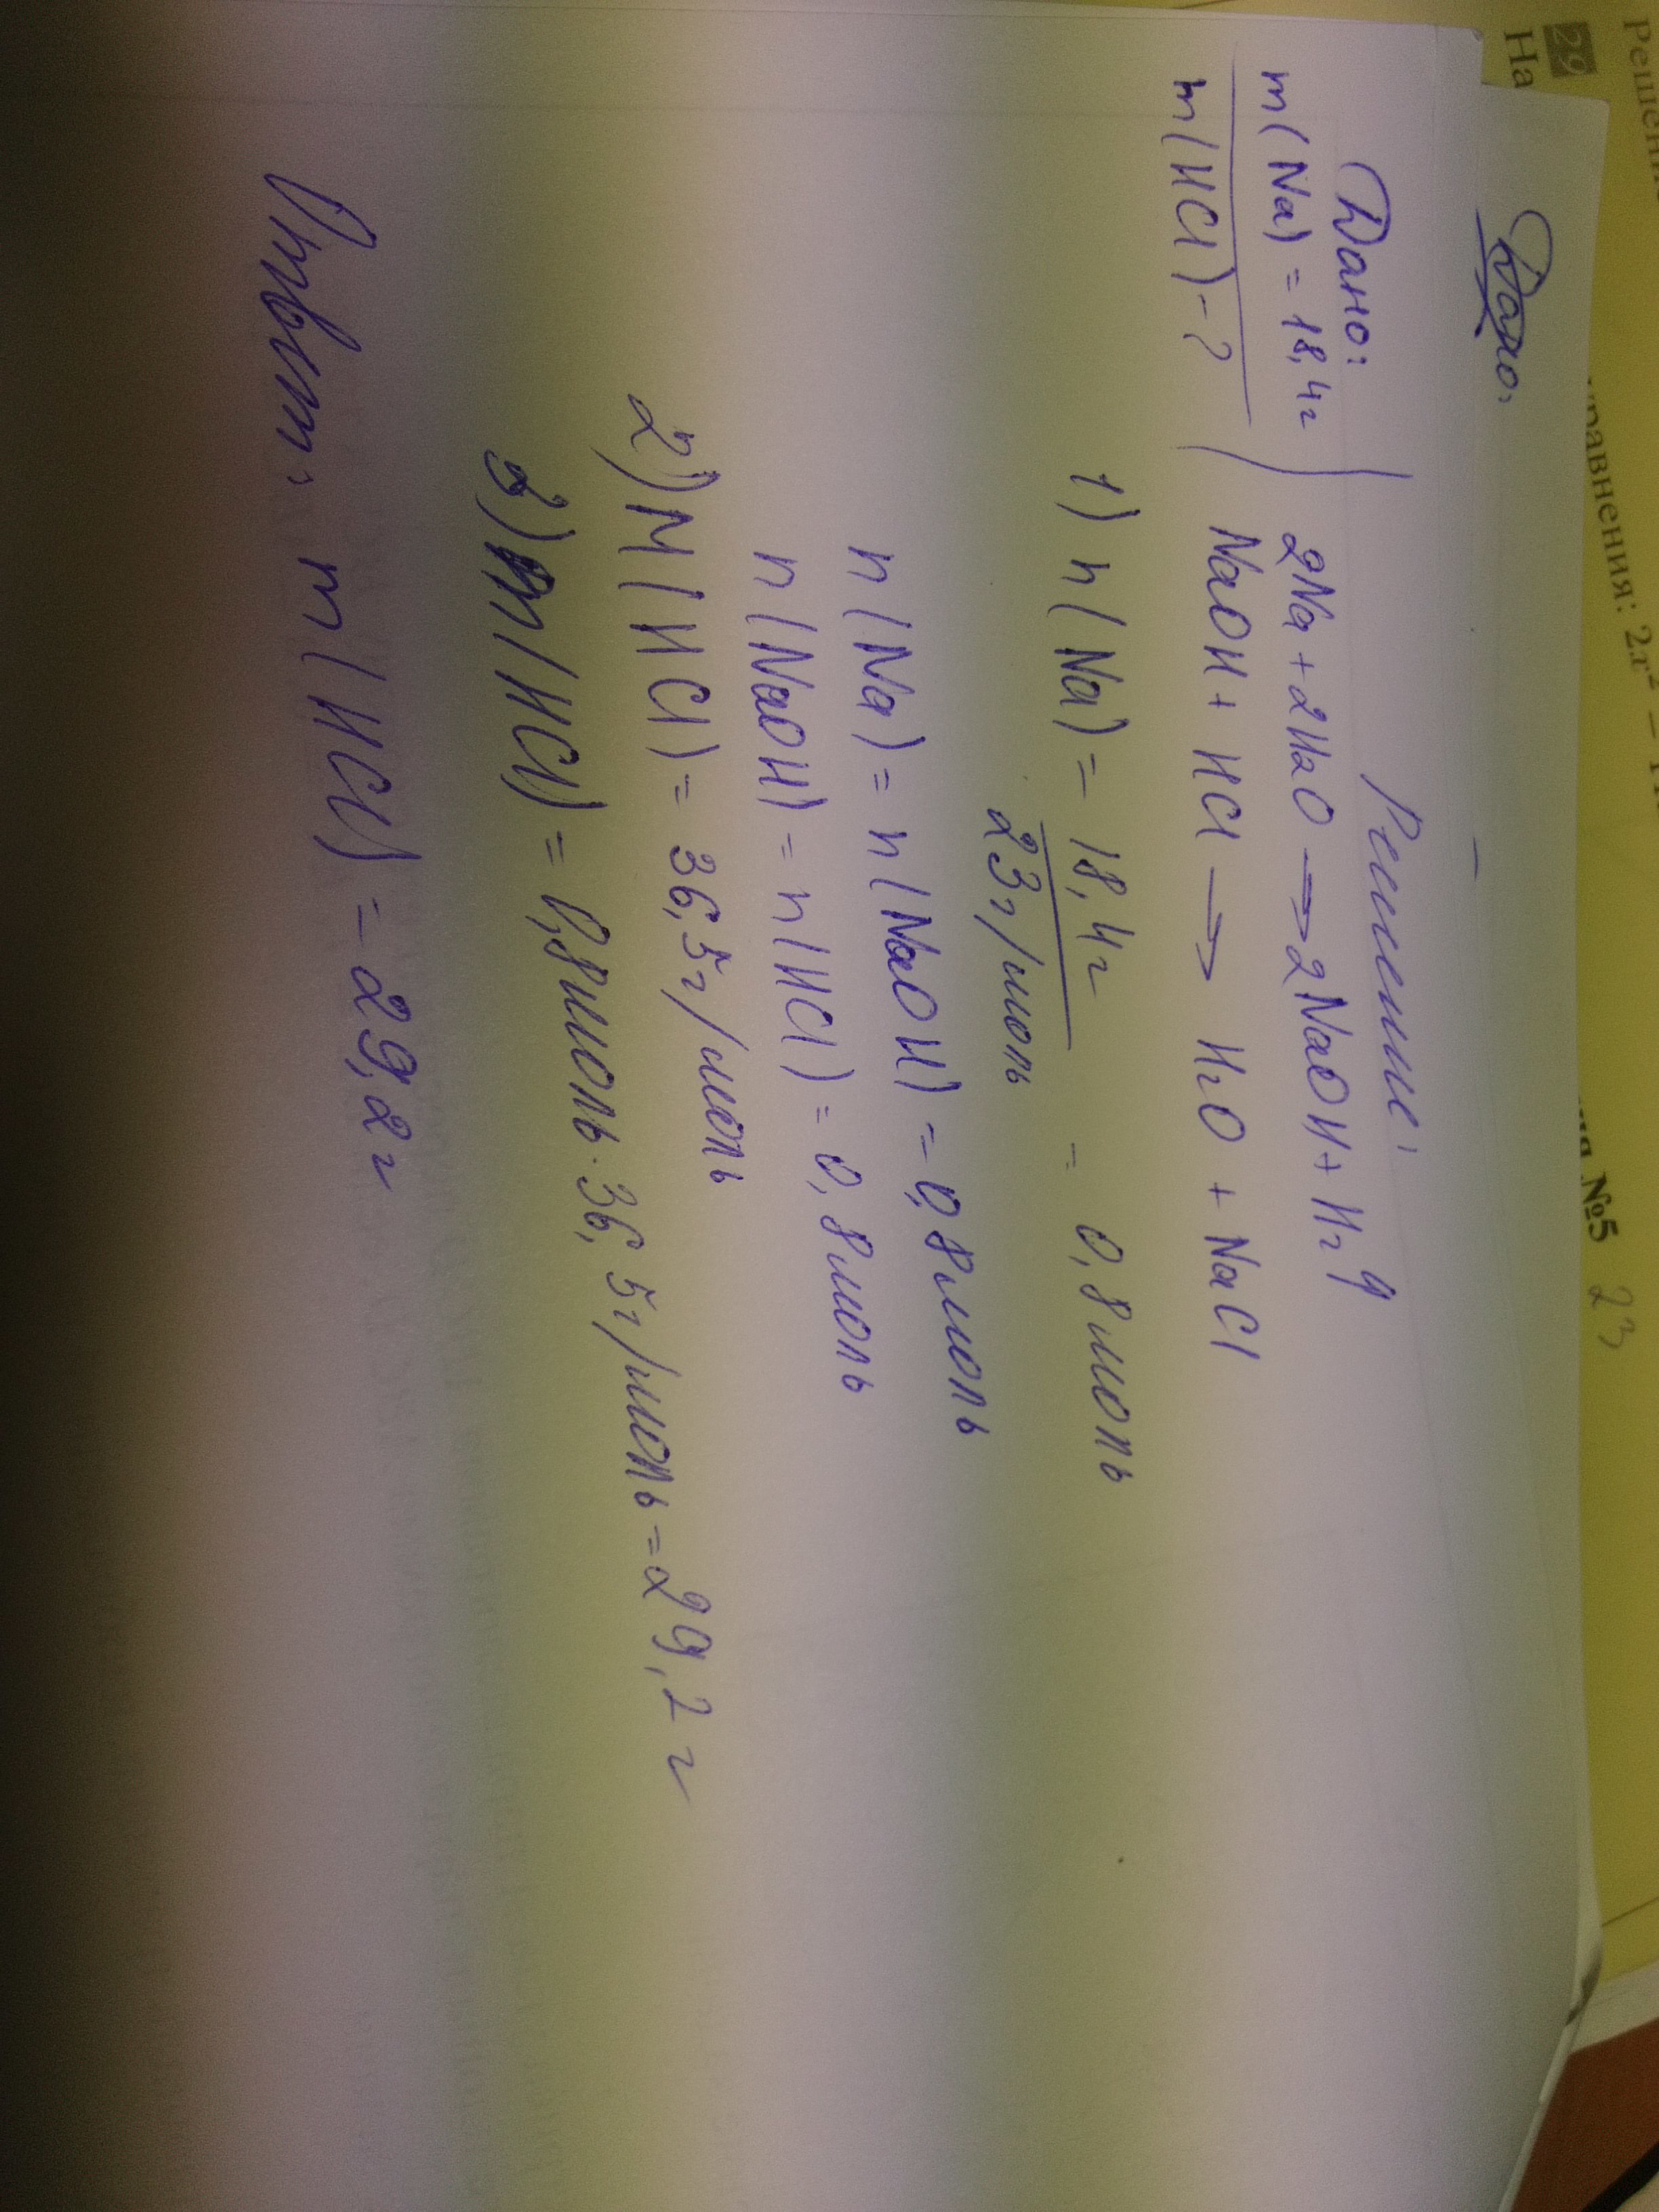 Решени
29
На
уравнения: 2x² –
ия №5 23
Дано:
Дано:
Решение:
m(Na) = 18,4г
2Na + 2H2O → 2NaOH + H2↑
m(HCl) - ?
NaOH + HCl → H2O + NaCl
1) n(Na) = 18,4г / 23г/моль = 0,8моль
n(Na) = n(NaOH) = 0,8моль
n(NaOH) = n(HCl) = 0,8моль
2) M(HCl) = 36,5г/моль
3) m(HCl) = 0,8моль · 36,5г/моль = 29,2г
Ответ: m(HCl) = 29,2г